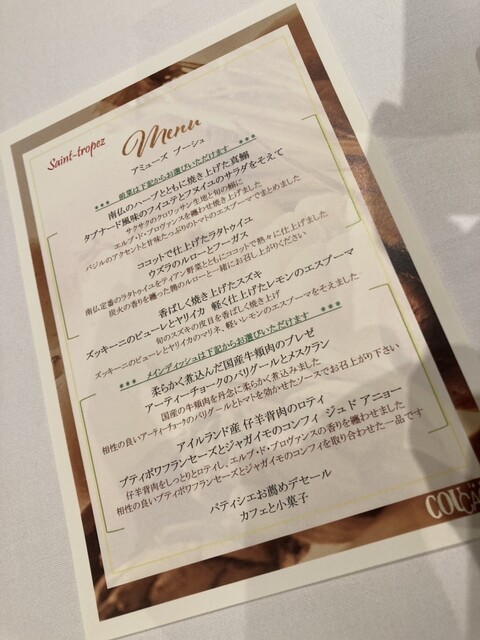 Saint-tropez
Menu
アミューズ ブーシュ
*** 前菜は下記からお選びいただけます ***
南仏のハーブとともに焼き上げた真鯛
タプナード風味のフイユテとフヌイユのサラダをそえて
サクサクのクロワッサン生地と旬の鯛に
エルブ・ド・プロヴァンスを纏わせ焼き上げました
バジルのアクセントと甘味たっぷりのトマトのエスプーマでまとめました
ココットで仕上げたラタトゥイユ
ウズラのルローとフーガス
南仏定番のラタトゥイユをティアン野菜とともにココットで熱々に仕上げました
炭火の香りを纏った鶉のルローと一緒にお召し上がりください
香ばしく焼き上げたスズキ
ズッキーニのピューレとヤリイカ 軽く仕上げたレモンのエスプーマ
旬のスズキの皮目を香ばしく焼き上げ
ズッキーニのピューレとヤリイカのマリネ、軽いレモンのエスプーマをそえました
*** メインディッシュは下記からお選びいただけます ***
柔らかく煮込んだ国産牛頬肉のブレゼ
アーティーチョークのバリグールとメスクラン
国産の牛頬肉を丹念に柔らかく煮込みました
相性の良いアーティーチョークのバリグールとトマトを効かせたソースでお召上がり下さい
アイルランド産 仔羊背肉のロティ
プティポワフランセーズとジャガイモのコンフィ ジュ ド アニョー
仔羊背肉をしっとりとロティし、エルブ・ド・プロヴァンスの香りを纏わせました
相性の良いプティポワフランセーズとジャガイモのコンフィを取り合わせた一品です
パティシエお薦めデセール
カフェと小菓子